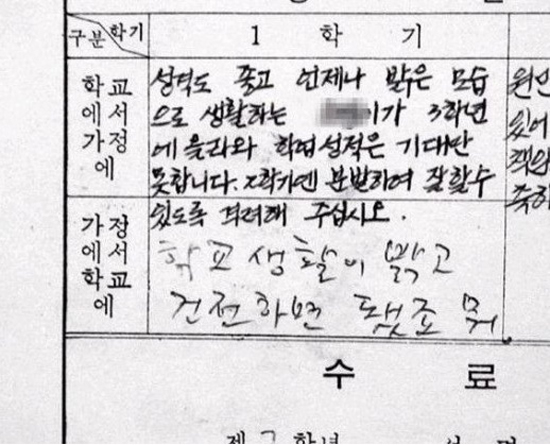 구분 학기
1 학 기
학교에서 가정에
성격도 좋고 언제나 밝은 모습
으로 생활하는 이가 3학년
에 올라와 학업성적은 기대만
못합니다. 2학기엔 분발하여 잘할수
있도록 격려해 주십시오.
가정에서 학교에
학교생활이 밝고
건전하면 됐죠 뭐
수 료